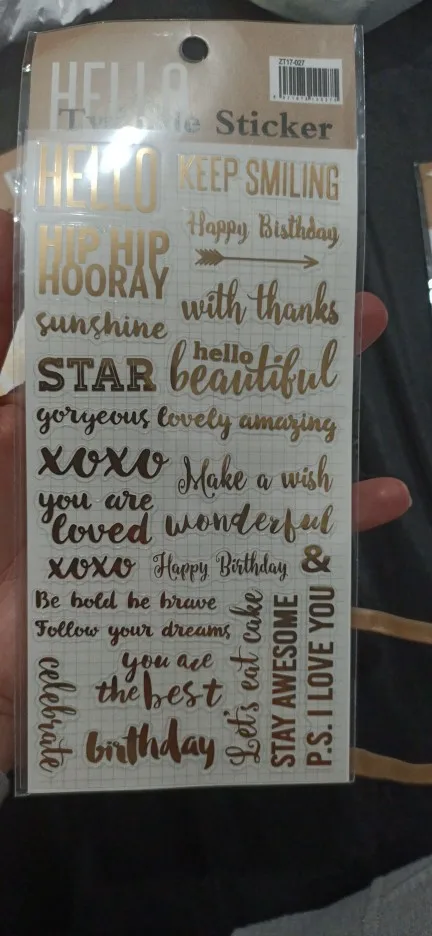 HELLO
Twinkle Sticker
ZT17-027
HELLO
KEEP SMILING
Happy Bisthday
HIP HIP
HOORAY
with thanks
sunshine
STAR
hello
beautiful
goryeous lovely amazing
xoxo
Make a wish
you are
loved
wonderful
xoxo
Happy Birthday
&
Be bold be brave
Follow your dreams
you are
the best
celebrate
birthday
Let's eat cake
STAY AWESOME
P.S. I LOVE YOU